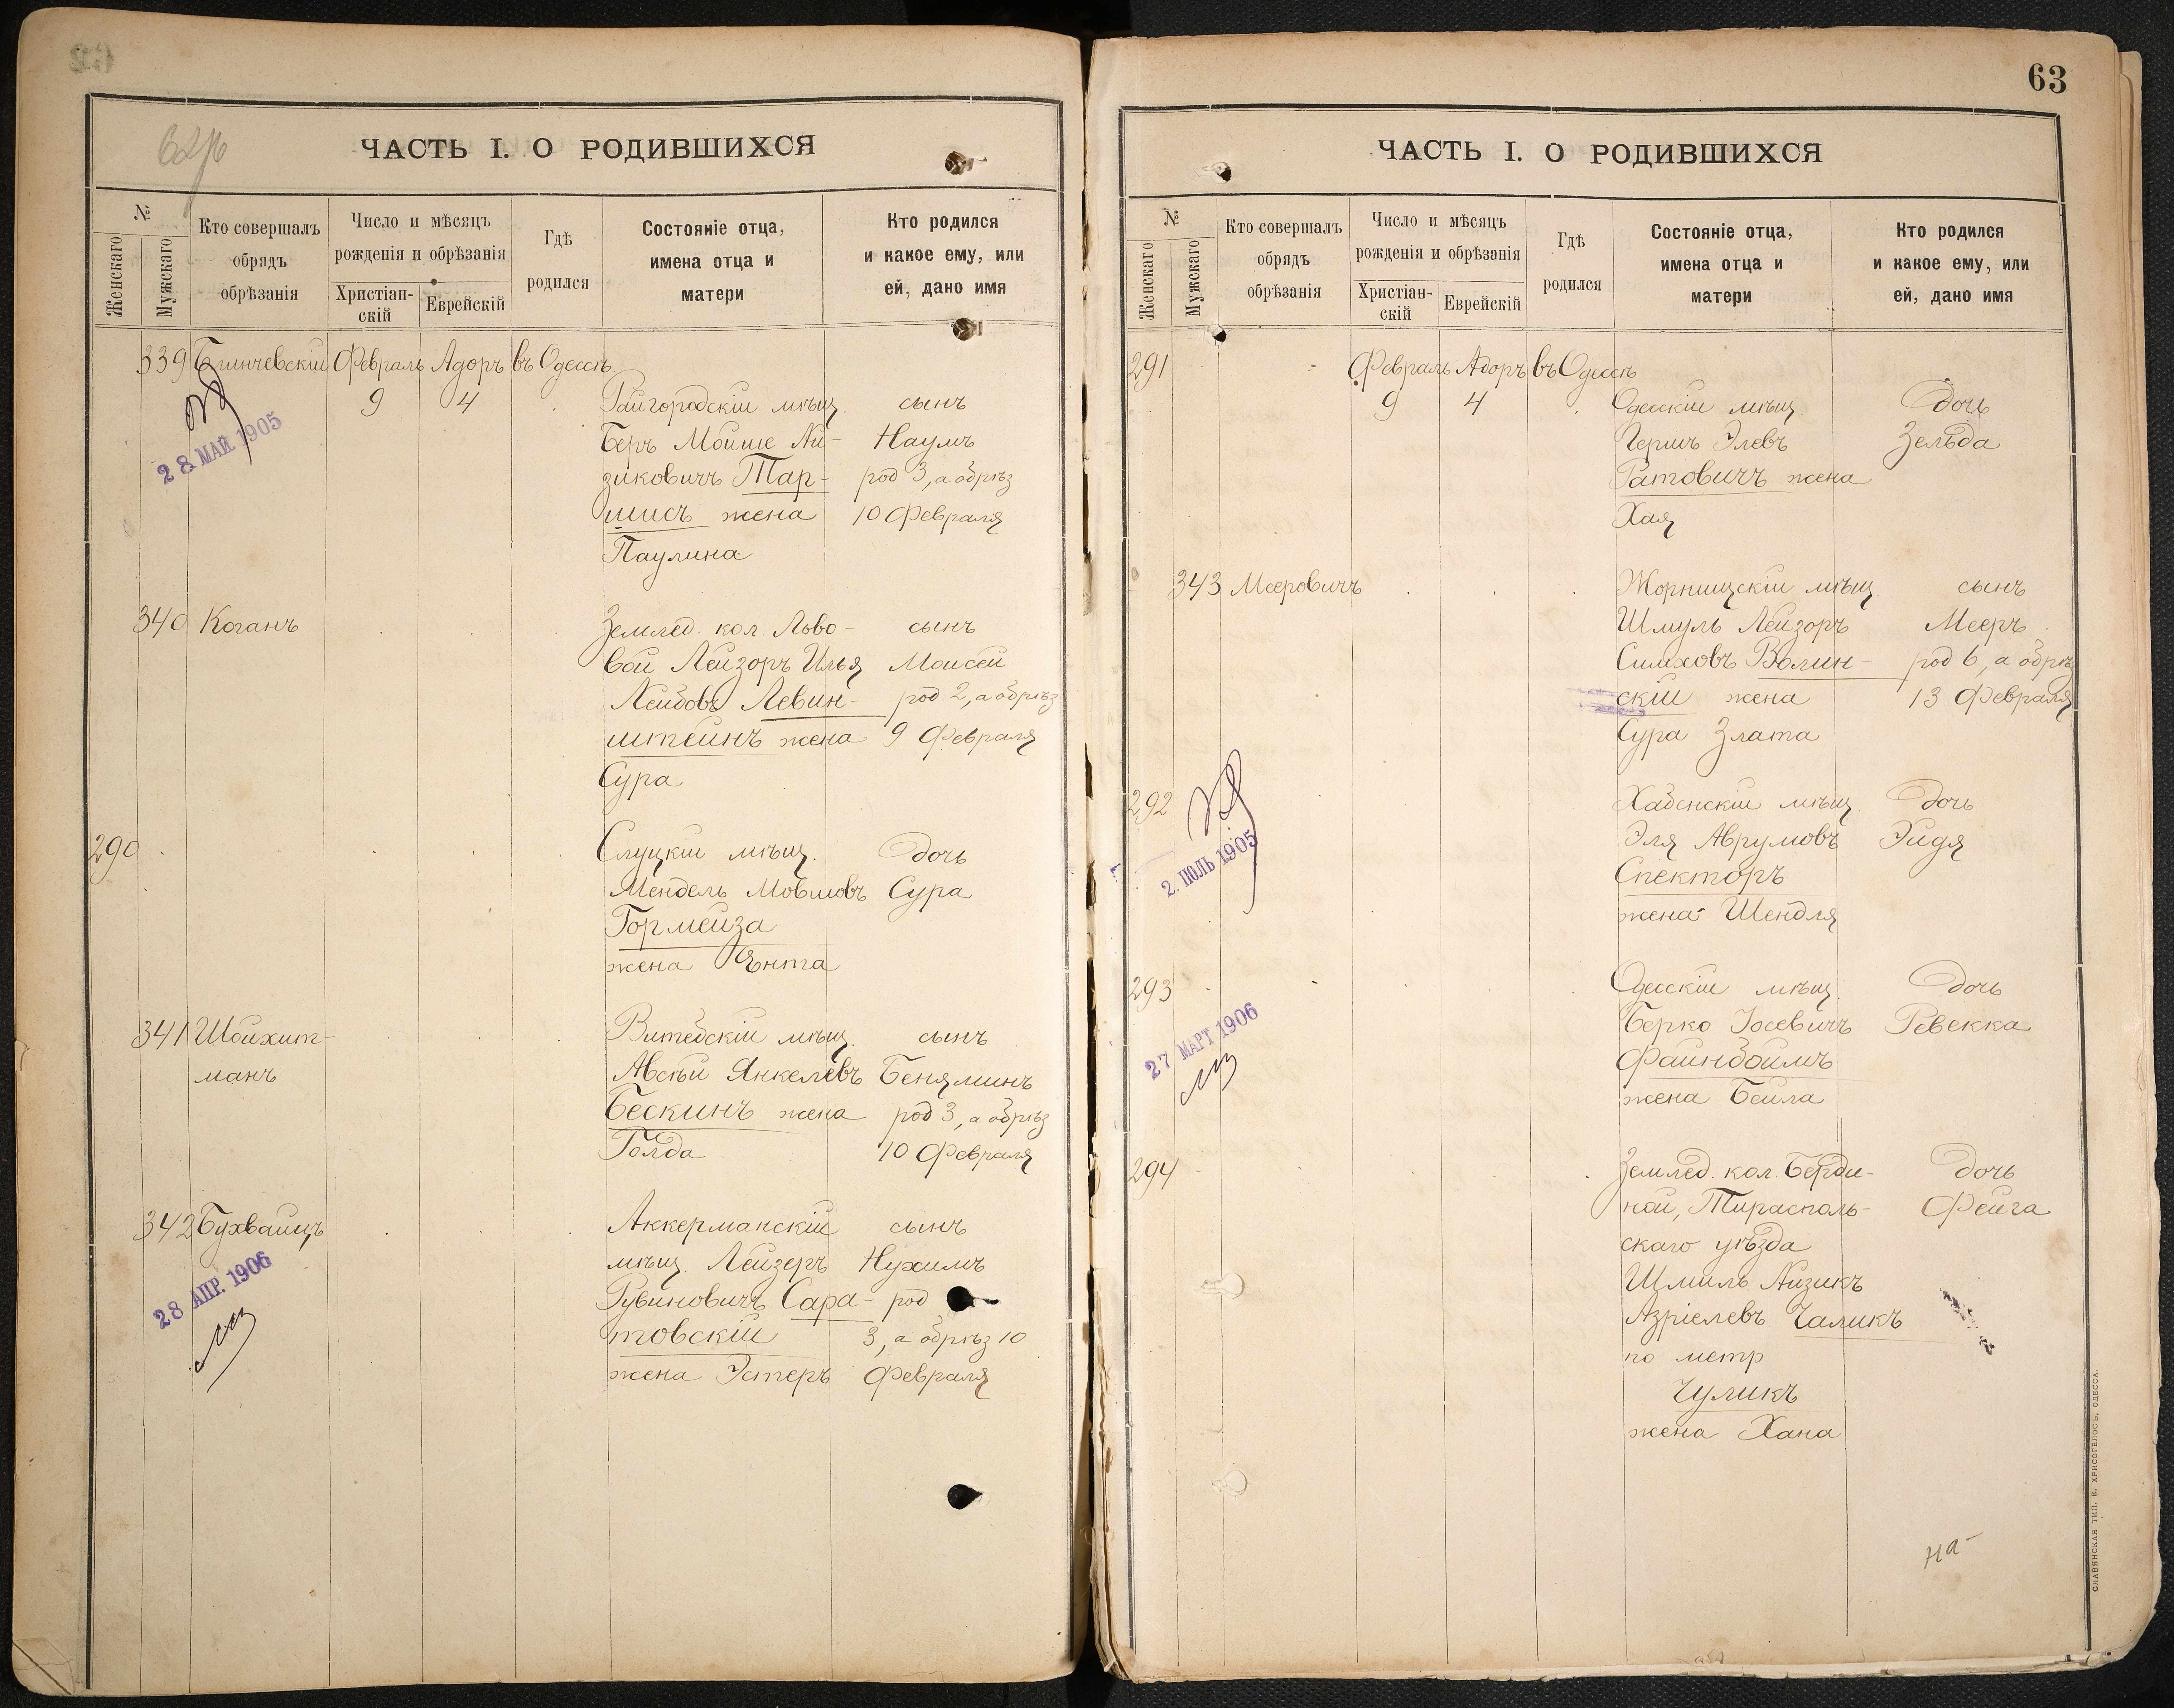 62
62/6
ЧАСТЬ I. О РОДИВШИХСЯ
№
Женскаго
Мужскаго
Кто совершалъ
обрядъ
обрѣзанія
Число и мѣсяцъ
рожденія и обрѣзанія
Христіан-
скій
Еврейскій
Гдѣ
родился
Состояніе отца,
имена отца и
матери
Кто родился
и какое ему, или
ей, дано имя
339 Бѣличевскій Февраль Адоръ въ Одессѣ
9 4
28 МАЙ 1905
Райгородскій мѣщ. сынъ
Беръ Мойше Ай- Наумъ
зиковичъ Тар- род 3, а обрѣз
шисъ жена 10 Февраля
Паулина
340 Коганъ
Землед. кол. Льво- сынъ
вой Лейзоръ Илья Моисей
Лейбовъ Левин- род 2, а обрѣз
штейнъ жена 9 Февраля
Сура
290
Слуцкій мѣщ. дочь
Мендель Мовшовъ Сура
Гормейза
жена Ента
341 Шойхит-
манъ
Витебскій мѣщ. сынъ
Авсѣй Янкелевъ Беняминъ
Бескинъ жена род 3, а обрѣз
Голда 10 Февраля
342 Бухвайцъ
28 АПР. 1906
Аккерманскій сынъ
мѣщ. Лейзеръ Нухимъ
Рувиновичъ Сара- род
товскій 3, а обрѣз 10
жена Эстеръ Февраля
63
ЧАСТЬ I. О РОДИВШИХСЯ
№
Женскаго
Мужскаго
Кто совершалъ
обрядъ
обрѣзанія
Число и мѣсяцъ
рожденія и обрѣзанія
Христіан-
скій
Еврейскій
Гдѣ
родился
Состояніе отца,
имена отца и
матери
Кто родился
и какое ему, или
ей, дано имя
291 Февраль Адоръ въ Одессѣ
9 4
Одесскій мѣщ. дочь
Гершъ Элевъ Зельда
Ратовичъ жена
Хая
343 Мееровичъ
Жорнищскій мѣщ. сынъ
Шмуль Лейзоръ Мееръ
Симховъ Волин- род 6, а обрѣз
скій жена 13 Февраля
Сура Злата
292
2. ІЮЛЬ 1905
Хабенскій мѣщ. дочь
Эля Аврумовъ Эйдя
Спекторъ
жена Шендля
293
27 МАРТ 1906
Одесскій мѣщ. дочь
Берко Іосевичъ Ревекка
Файнбоймъ
жена Бейла
294
Землед. кол. Берди- дочь
ной, Тирасполь- Фейга
скаго уѣзда
Шмиль Айзикъ
Азріелевъ Чаликъ
по метр
Чуликъ
жена Хана
на-
СЛАВЯНСКАЯ ТИП. Е. ХРИСОГЕЛОСЪ, ОДЕССА.